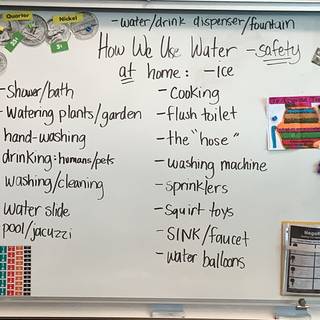 Quarter
Nickel
25¢
5¢
-water/drink dispenser/fountain
How We Use Water -safety
at home: -Ice
-Shower/bath
-Watering plants/garden
hand-washing
drinking: humans/pets
washing/cleaning
water slide
pool/jacuzzi
-Cooking
-flush toilet
-the "hose"
-washing machine
-sprinklers
-Squirt toys
-SINK/faucet
-water balloons